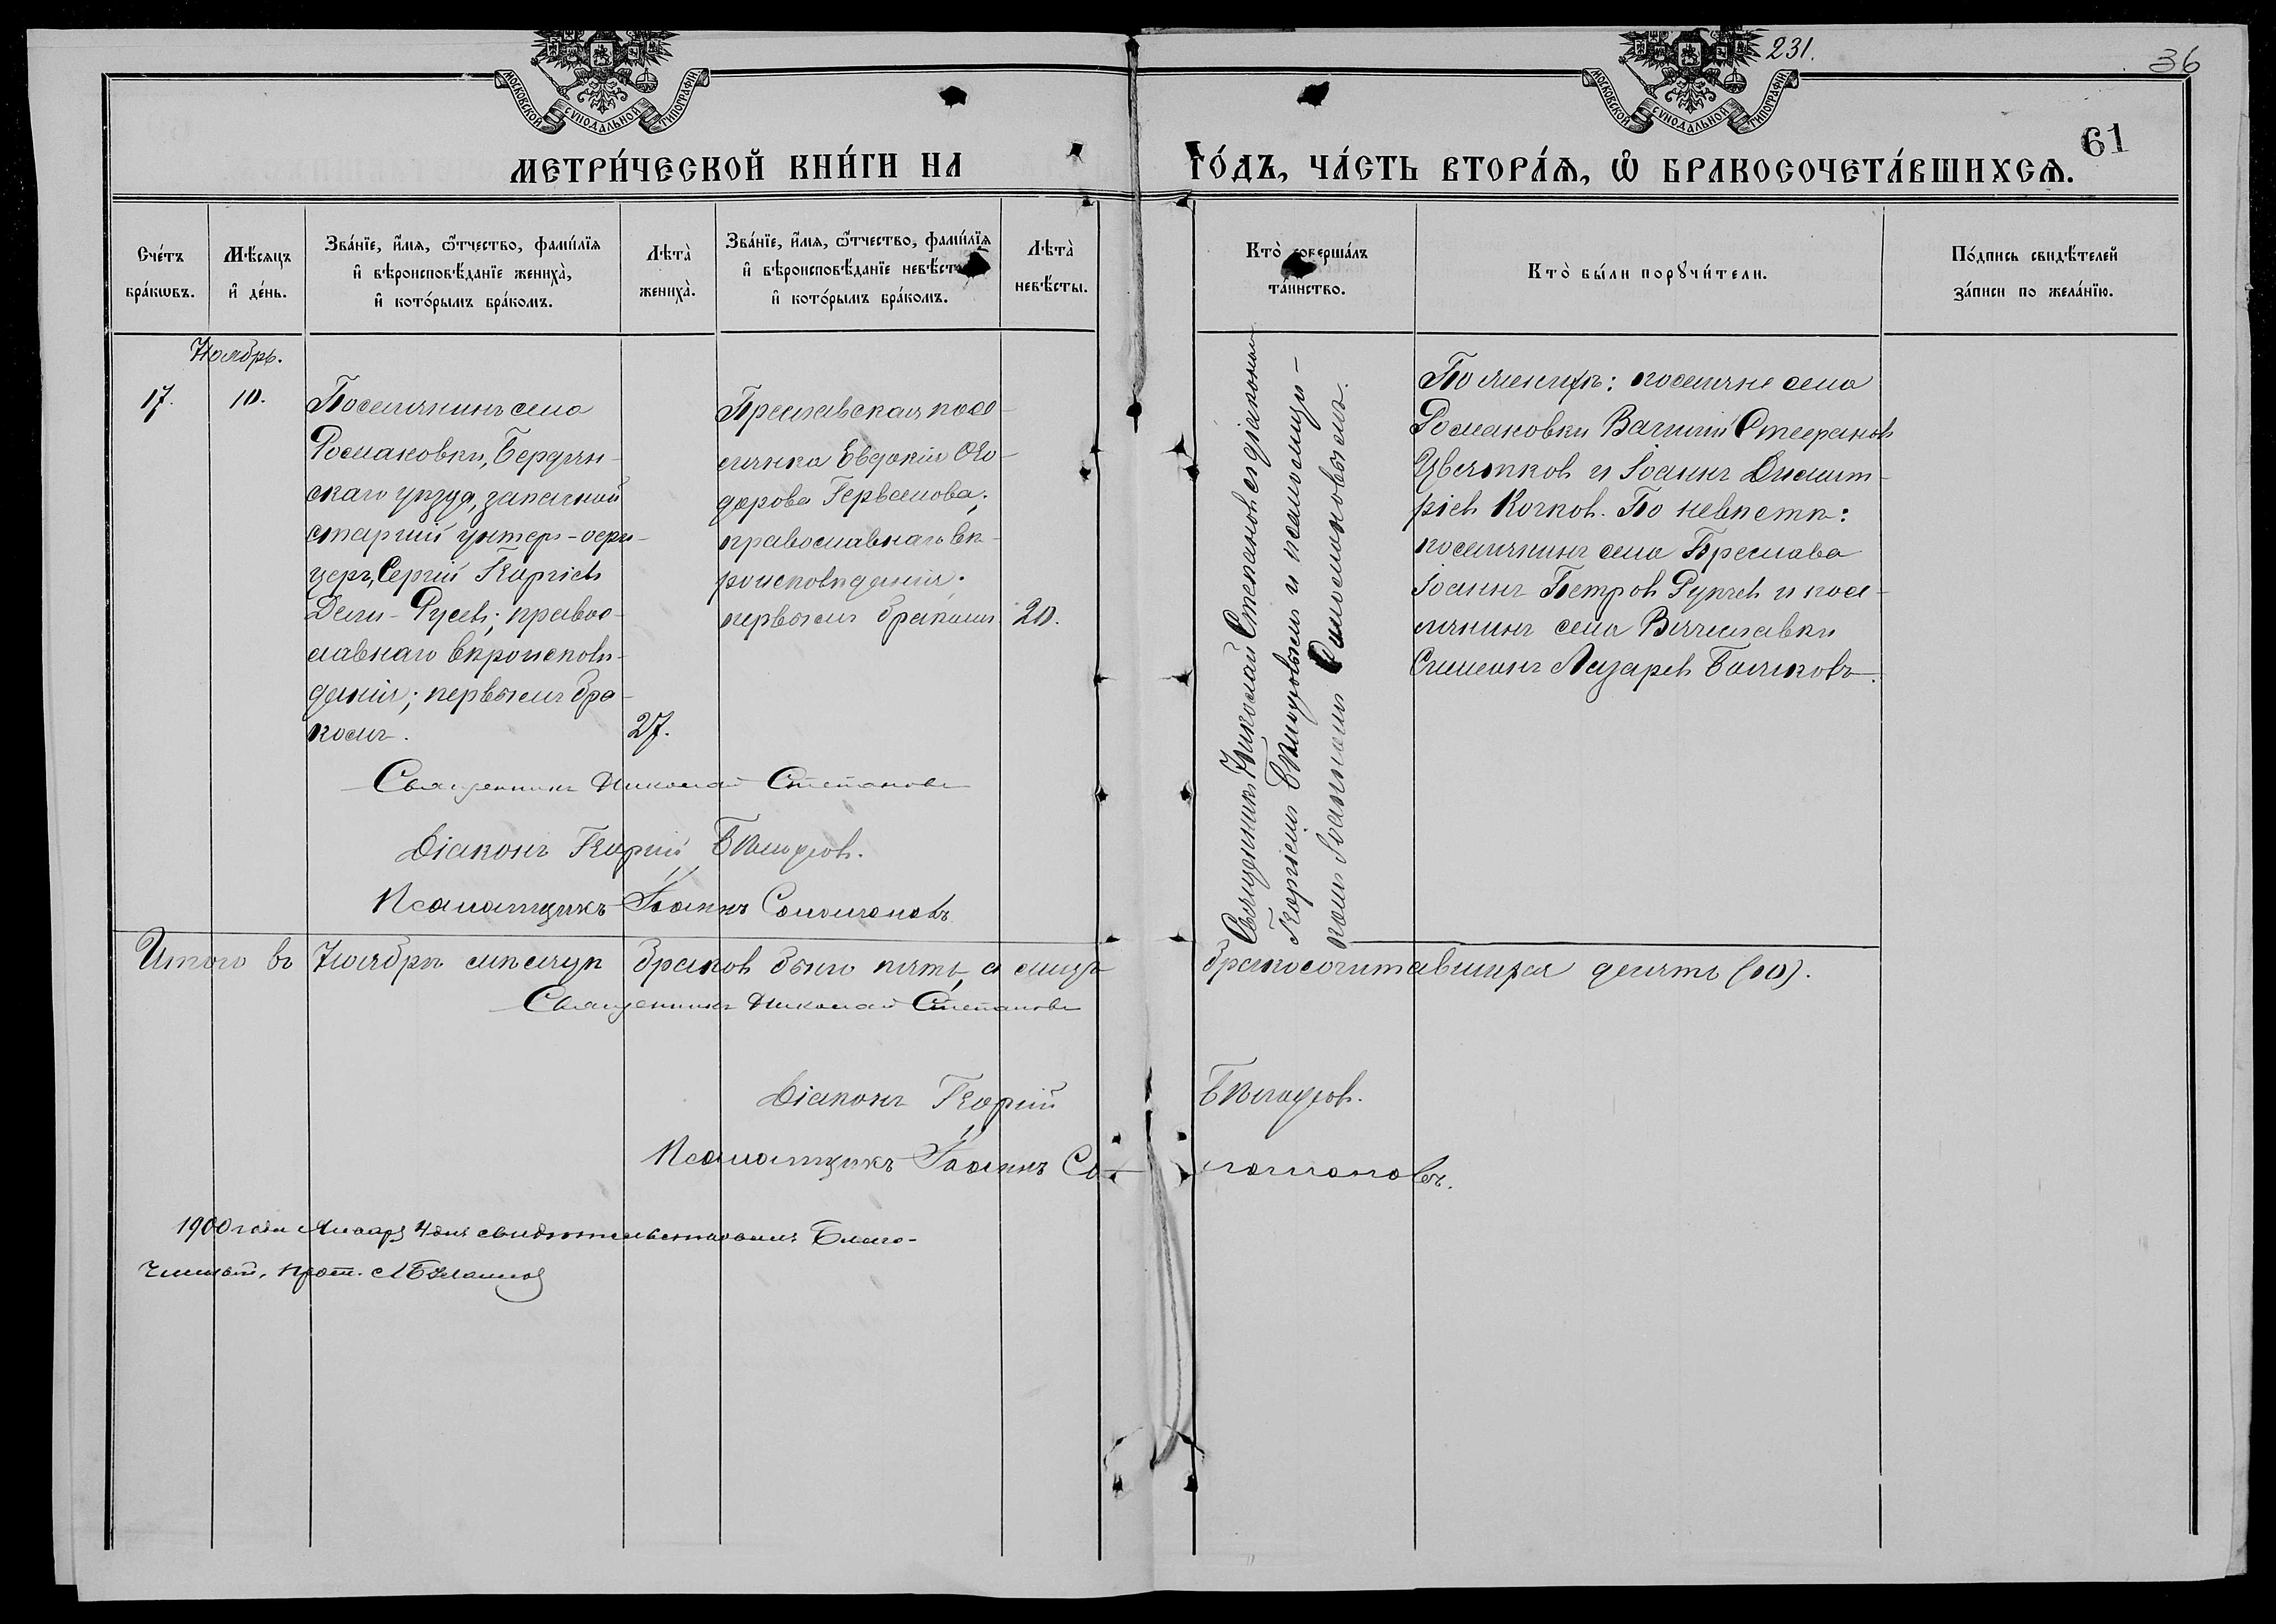 231.
36
МОСКОВСКОЙ СѴНОДАЛЬНОЙ ТИПОГРАФІИ
МОСКОВСКОЙ СѴНОДАЛЬНОЙ ТИПОГРАФІИ
61
МЕТРИ́ЧЕСКОЙ КНИ́ГИ НА
ГО́ДЪ, ЧА́СТЬ ВТОРА́Ѧ, Ѡ҆ БРАКОСОЧЕТА́ВШИХСѦ.
Сче́тъ
бра́кѡвъ.
Мѣ́сѧцъ
и҆ де́нь.
Зва́нїе, и҆́мѧ, ѻ҆́тчество, фамі́лїѧ
и҆ вѣроисповѣ́данїе жениха̀,
и҆ кото́рымъ бра́комъ.
Лѣта̀
жениха̀.
Зва́нїе, и҆́мѧ, ѻ҆́тчество, фамі́лїѧ
и҆ вѣроисповѣ́данїе невѣ́сты
и҆ кото́рымъ бра́комъ.
Лѣта̀
невѣ́сты.
Кто̀ соверша́лъ
та́инство.
Кто̀ бы́ли порꙋчи́тели.
По́дпись свидѣ́телей
за́писи по жела́нїю.
Ноябрь.
17.
10.
Поселянинъ села
Романовки, Бердян-
скаго уѣзда, запасной
старшій унтеръ-офи-
церъ, Сергій Георгіевъ
Дели-Русевъ; правос-
лавнаго вѣроисповѣ-
данія; первымъ бра-
комъ.
27.
Преславская посе-
лянка Евдокія Ѳео-
дорова Гервалова;
православнаго вѣ-
роисповѣданія;
первымъ бракомъ
20.
Священникъ Николай Степановъ съ діакономъ
Георгіемъ и псаломщи-
комъ Іоанномъ Соломоновымъ.
По женихѣ: поселяне села
Романовки Василій Стефановъ
Цвѣтковъ и Іоаннъ Димит-
ріевъ Кочковъ. По невѣстѣ:
поселянинъ села Преслава
Іоаннъ Петровъ Рупчевъ и посе-
лянинъ села Вячеславки
Симеонъ Лазаревъ Поляковъ.
Священникъ Николай Степановъ
Діаконъ Георгій
Псаломщикъ Іоаннъ Соломоновъ
Итого въ Ноябрѣ мѣсяцѣ браковъ было пять, а лицъ бракосочитавшихся десять (10).
Священникъ Николай Степановъ
Діаконъ Георгій
Псаломщикъ Іоаннъ Соломоновъ.
1900 года Января 4 дня свидѣтельствовалъ Благо-
чинный, прот.